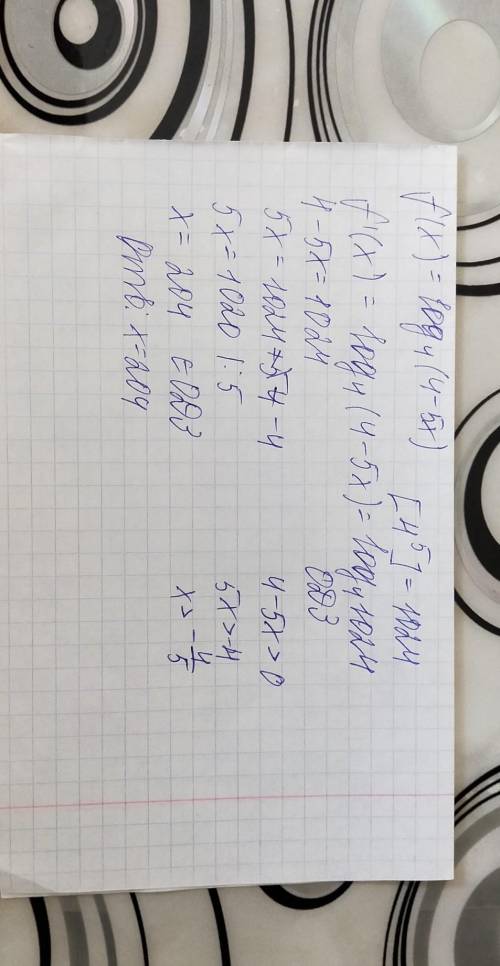 f'(x) = log₄(4-5x) [4⁵] = 1024
f'(x) = log₄(4-5x) = log₄1024
4-5x = 1024 ОДЗ
5x = 1024 -4 4-5x > 0
5x = 1020 |:5 5x > -4
x = 204 ∈ ОДЗ x > -4/5
Отв: x = 204